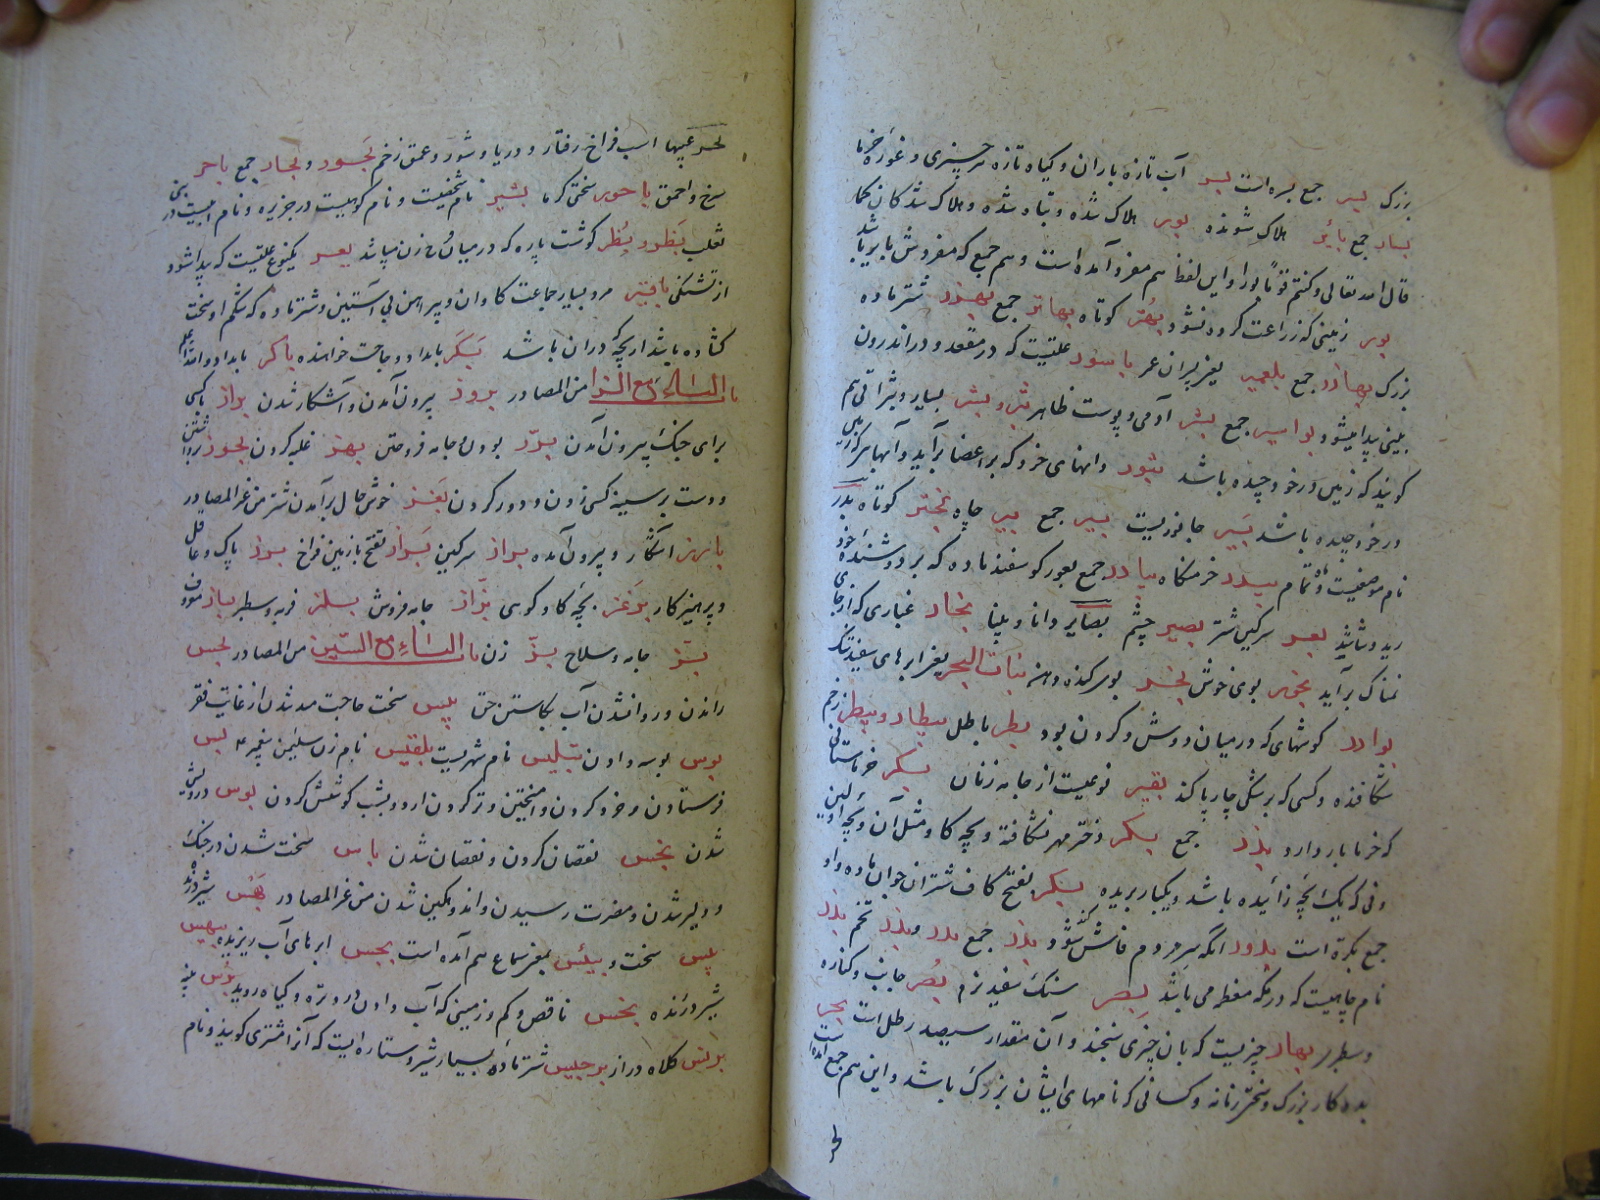 بزرگ بسر جمع بسره است بسر آب تازه باران و گیاه تازه هر چیزی و غوره خرما
بسار جمع بائر هلاک شونده بور هلاک شده و تباه شده و هلاک شدگان
قال الله تعالی وکنتم قوما بورا و این لفظ هم مفرد آمده است و هم جمع که مفردش بایر باشد
بور زمینی که زراعت کرده نشود بهتر کوتاه بهاتر جمع بهزر شتر ماده
بزرگ بهازر جمع بلعمیر پسران عم باسور علتیست که در مقعد و در اندرون
بینی پیدا میشود بواسیر جمع بشر آدمی و پوست ظاهر بثر و بثیر بسیار
گویند که زمین در خود چیده باشد بثور دانهای خرد که بر اعضا برآید و آبها
در خود چیده باشد ببر جانوریست بیر جمع بیر چاه بحتر کوتاه بدر
نام موضعیست و ماه تمام بیدر خرمنگاه بیادر جمع یعور گوسفند ماده که بر دوشنده خود
رید و شاشد بعر سرگین شتر بصیر چشم بصایر دانا و بینا بخار غباری که از جای
نمناک برآید بخور بوی خوش بخر بوی گنده دهن بنات البحر یعنی ابرهای سفید تنک
بوادر گوشتهای که در میان دوش و گردن بود بطر باطل بیطار و بیطر زخم
شکافنده و کسی که پزشکی چارپا کند بقیر نوعیست از جامه زنان بسکر خرماستانی
که خرما بار دارد بذر جمع بکر دختر مهر نشکافته و بچه گاو مثل آن و بچه اولین
و زنی که یک بچه زائیده باشد و یکبار بریده بکر بفتح کاف شتران جوان ماده واو
جمع بکرة است بذور آنکه سر مردم فاش کند بذر جمع بذر و بذر تخم بذر
نام چاهیست که در مکه معظمه می باشد بصر سنگ سفید نرم بصر جانب و کناره
و سطبر بهار چیزیست که بآن چیزی سنجند و آن مقدار سیصد رطل است بجر
بد و کار بزرگ و سخت زنانه و کسانی که نافهای ایشان بزرگ باشد و این هم جمع آمده است
بحر عیبها اسب فراخ رفتار و دریا و شور و عمق زخم بحور و بحار جمع باحر
سرخ و احمق باحور سختی گرما بشیر نام شخصیست و نام کوهیست در جزیره و نام آبیست در بنی
تغلب بظر و بظر گوشت پاره که در میان فرج زن میباشد بغر یکنوع علتیست که پیدا شود
از تشنگی باقر مرد بسیار جماعت گاوان و پیراهن بی آستین و شتر ماده که شکم او سخت
گشاده باشد از بچه در آن باشد بکر بامداد و حاجت خواهنده باکر بامداد والله اعلم
باب الباء مع الزا من المصادر بروز بیرون آمدن و آشکار شدن براز با کسی
برای جنگ بیرون آمدن بزز بودن و جامه فروختن بهز غلبه کردن بحوز
و دست بر سینه کسی زدن و دور کردن بغز خوش حال برآمدن شتر من غیر المصادر
بارز آشکار و بیرون آمده براز سرگین براز بفتح با زمین فراخ برز پاک و عاقل
و پرهیزکار برغز بچه گاو کوهی بزاز جامه فروش بلز فربه و سطبر باز معروف
بز جامه و سلاح بز زن باب الباء مع السین من المصادر بجس
راندن و روان شدن آب بکاستن حق بئس سخت حاجتمند شدن از غایت فقر
بوس بوسه دادن تبلیس نام شهریست بلقیس نام زن سلیمن پیغمبر ع بس
فرستادن و خرد کردن و آمیختن و تر کردن آرد و بشب کوشش کردن بؤس درویش
شدن بخس نقصان کردن و نقصان شدن باس سخت شدن در جنگ
و دلیر شدن و مضرت رسیدن و اندوهگین شدن من غیر المصادر بهس شیر درنده
بئس سخت و بیئس بمعنی سماع هم آمده است بجس ابرهای آب ریزنده بیهس
شیر درنده بخس ناقص و کم و زمینی که آب دادن در ویژه و گیاه روید بؤس بلیه
برنس کلاه دراز برجیس شتر ماده بسیار شیر و ستاره ایست که آنرا مشتری گویند و نام